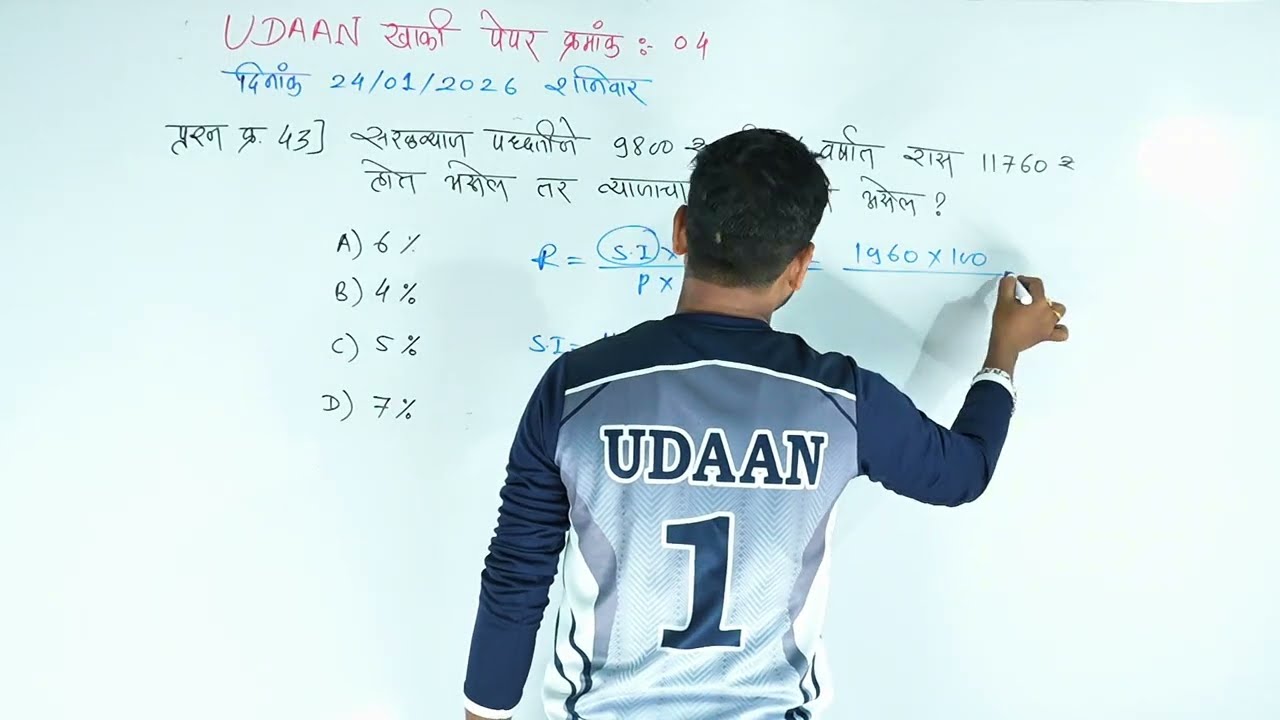 UDAAN खाकी पेपर क्रमांक :- 04
दिनांक 24/01/2026 शनिवार
प्रश्न क्र. 43] सरळव्याज पध्दतीने 9800 वर्षात रास 11760 ₹
होत असेल तर व्याजाचा असेल ?
A) 6 %
B) 4 %
C) 5 %
D) 7 %
R = S.I ×
P ×
= 1960 × 100
S.I =
UDAAN
1